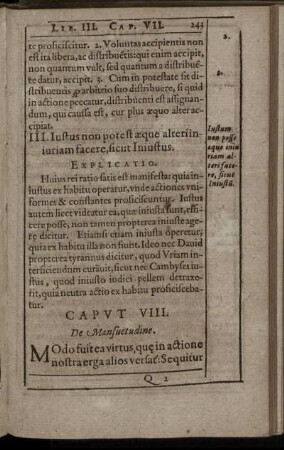 LIB. III. CAP. VII. 243
te proficiscitur. 2. Voluntas accipientis non
est ita libera, ac distribuẽtis: qui enim accipit,
non quantum vult, sed quantum a distribuẽ-
te datur, accipit. 3. Cum in potestate sit di-
stribuentis, p arbitrio suo distribuere, si quid
in actione peccatur, distribuẽti est assignan-
dum, qui causa est, cur plus æquo alter ac-
cipiat.
2.
3.
III. Iustus non potest æque alteri in-
iuriam facere, sicut Iniustus.
Iustum
non posse
æque iniu
riam al-
teri face-
re, sicut
Iniustũ.
EXPLICATIO.
Huius rei ratio satis est manifesta: quia in
iustus ex habitu operatur, vnde actiones vni
formes & constantes proficiscuntur. Iustus
autem licet videatur ea, quæ iniusta sunt, effi-
cere posse, non tamen propterea iniuste age-
re dicitur. Etiamsi etiam iniusta operetur,
quia ex habitu illa non fiunt. Ideo nec Dauid
propterea tyrannus dicitur, quod Vriam in-
terficiendum curauit, sicut nec Cambyses iu
stus, quod iniusto iudici pellem detraxe-
rit, quia neutra actio ex habitu proficisceba-
tur.
CAPVT VIII.
De Mansuetudine.
MOdo fuit ea virtus, quę in actione
nostra erga alios versat͛: Sequitur
Q 2